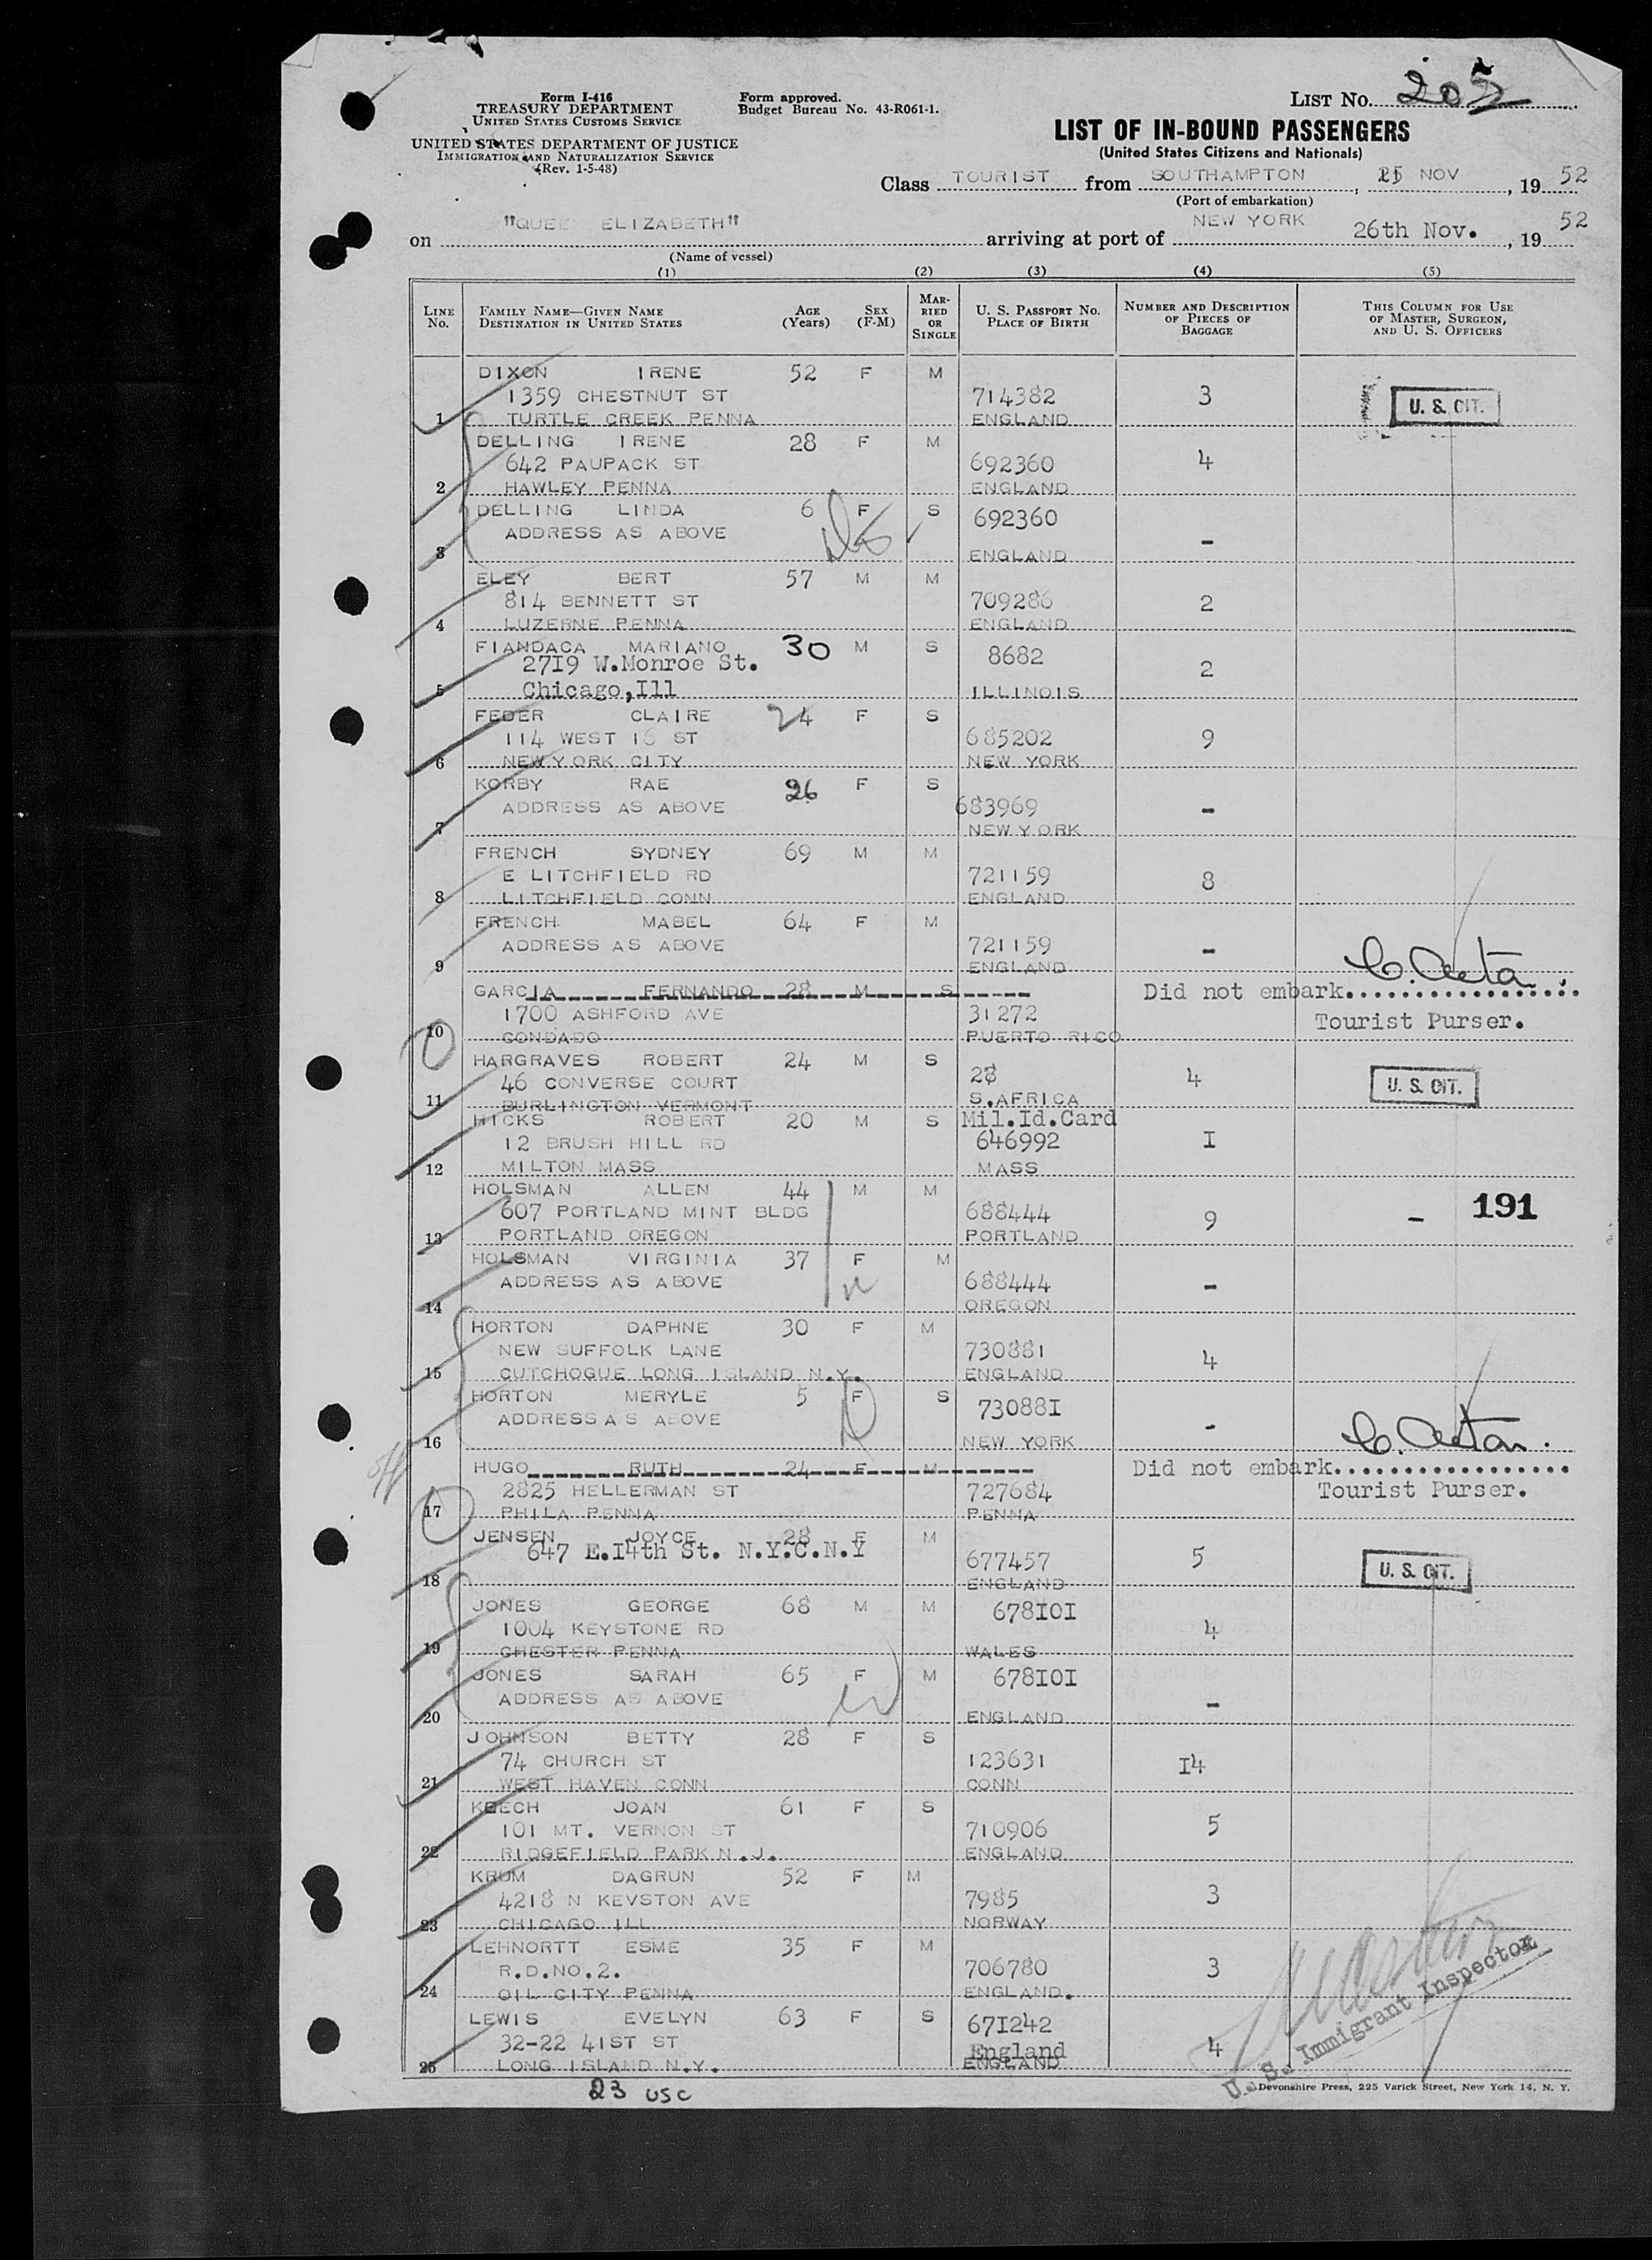 Form I-416
TREASURY DEPARTMENT
UNITED STATES CUSTOMS SERVICE
UNITED STATES DEPARTMENT OF JUSTICE
IMMIGRATION AND NATURALIZATION SERVICE
(Rev. 1-5-48)
Form approved.
Budget Bureau No. 43-R061-1.
LIST NO. 205
LIST OF IN-BOUND PASSENGERS
(United States Citizens and Nationals)
Class TOURIST from SOUTHAMPTON, NOV, 19 52
(Port of embarkation)
on "QUEE ELIZABETH" arriving at port of NEW YORK 26th Nov., 19 52
(Name of vessel)
(1) (2) (3) (4) (5)
LINE NO. FAMILY NAME—GIVEN NAME DESTINATION IN UNITED STATES AGE (Years) SEX (F-M) MARRIED OR SINGLE U. S. PASSPORT NO. PLACE OF BIRTH NUMBER AND DESCRIPTION OF PIECES OF BAGGAGE THIS COLUMN FOR USE OF MASTER, SURGEON, AND U. S. OFFICERS
DIXON IRENE 52 F M
1359 CHESTNUT ST 714382 3 U. S. CIT.
1 TURTLE CREEK PENNA ENGLAND
DELLING IRENE 28 F M
642 PAUPACK ST 692360 4
2 HAWLEY PENNA ENGLAND
DELLING LINDA 6 F S 692360
ADDRESS AS ABOVE -
3 ENGLAND
ELEY BERT 57 M M
814 BENNETT ST 709286 2
4 LUZERNE PENNA ENGLAND
FIANDACA MARIANO 30 M S 8682
2719 W.Monroe St. 2
5 Chicago,Ill ILLINOIS
FEDER CLAIRE 24 F S
114 WEST 16 ST 685202 9
6 NEW YORK CITY NEW YORK
KORBY RAE 26 F S
ADDRESS AS ABOVE 683969 -
7 NEW YORK
FRENCH SYDNEY 69 M M
E LITCHFIELD RD 721159 8
8 LITCHFIELD CONN ENGLAND
FRENCH MABEL 64 F M
ADDRESS AS ABOVE 721159 -
9 ENGLAND
GARCIA FERNANDO 28 M S Did not embark
1700 ASHFORD AVE 31272 Tourist Purser.
10 CONDADO PUERTO RICO
HARGRAVES ROBERT 24 M S
46 CONVERSE COURT 28 4 U. S. CIT.
11 BURLINGTON VERMONT S.AFRICA
HICKS ROBERT 20 M S Mil.Id.Card
12 BRUSH HILL RD 646992 I
12 MILTON MASS MASS
HOLSMAN ALLEN 44 M M
607 PORTLAND MINT BLDG 688444 9 - 191
13 PORTLAND OREGON PORTLAND
HOLSMAN VIRGINIA 37 F M
ADDRESS AS ABOVE 688444 -
14 OREGON
HORTON DAPHNE 30 F M
NEW SUFFOLK LANE 730881 4
15 CUTCHOGUE LONG ISLAND N.Y. ENGLAND
HORTON MERYLE 5 F S
ADDRESS AS ABOVE 73088I -
16 NEW YORK
HUGO RUTH 24 F M Did not embark
2825 HELLERMAN ST 727684 Tourist Purser.
17 PHILA PENNA PENNA
JENSEN JOYCE 28 F M
647 E.I4th St. N.Y.C.N.Y 677457 5 U. S. CIT.
18 ENGLAND
JONES GEORGE 68 M M 678IOI
1004 KEYSTONE RD 4
19 CHESTER PENNA WALES
JONES SARAH 65 F M 678IOI
ADDRESS AS ABOVE -
20 ENGLAND
JOHNSON BETTY 28 F S
74 CHURCH ST 123631 I4
21 WEST HAVEN CONN CONN
KEECH JOAN 61 F S
101 MT. VERNON ST 710906 5
22 RIDGEFIELD PARK N.J. ENGLAND
KRUM DAGRUN 52 F M
4218 N KEVSTON AVE 7985 3
23 CHICAGO ILL NORWAY
LEHNORTT ESME 35 F M
R.D.NO.2. 706780 3
24 OIL CITY PENNA ENGLAND.
LEWIS EVELYN 63 F S 67I242
32-22 41ST ST England 4
25 LONG ISLAND N.Y. ENGLAND
U. S. Immigrant Inspector
23 USC
Devonshire Press, 225 Varick Street, New York 14, N. Y.